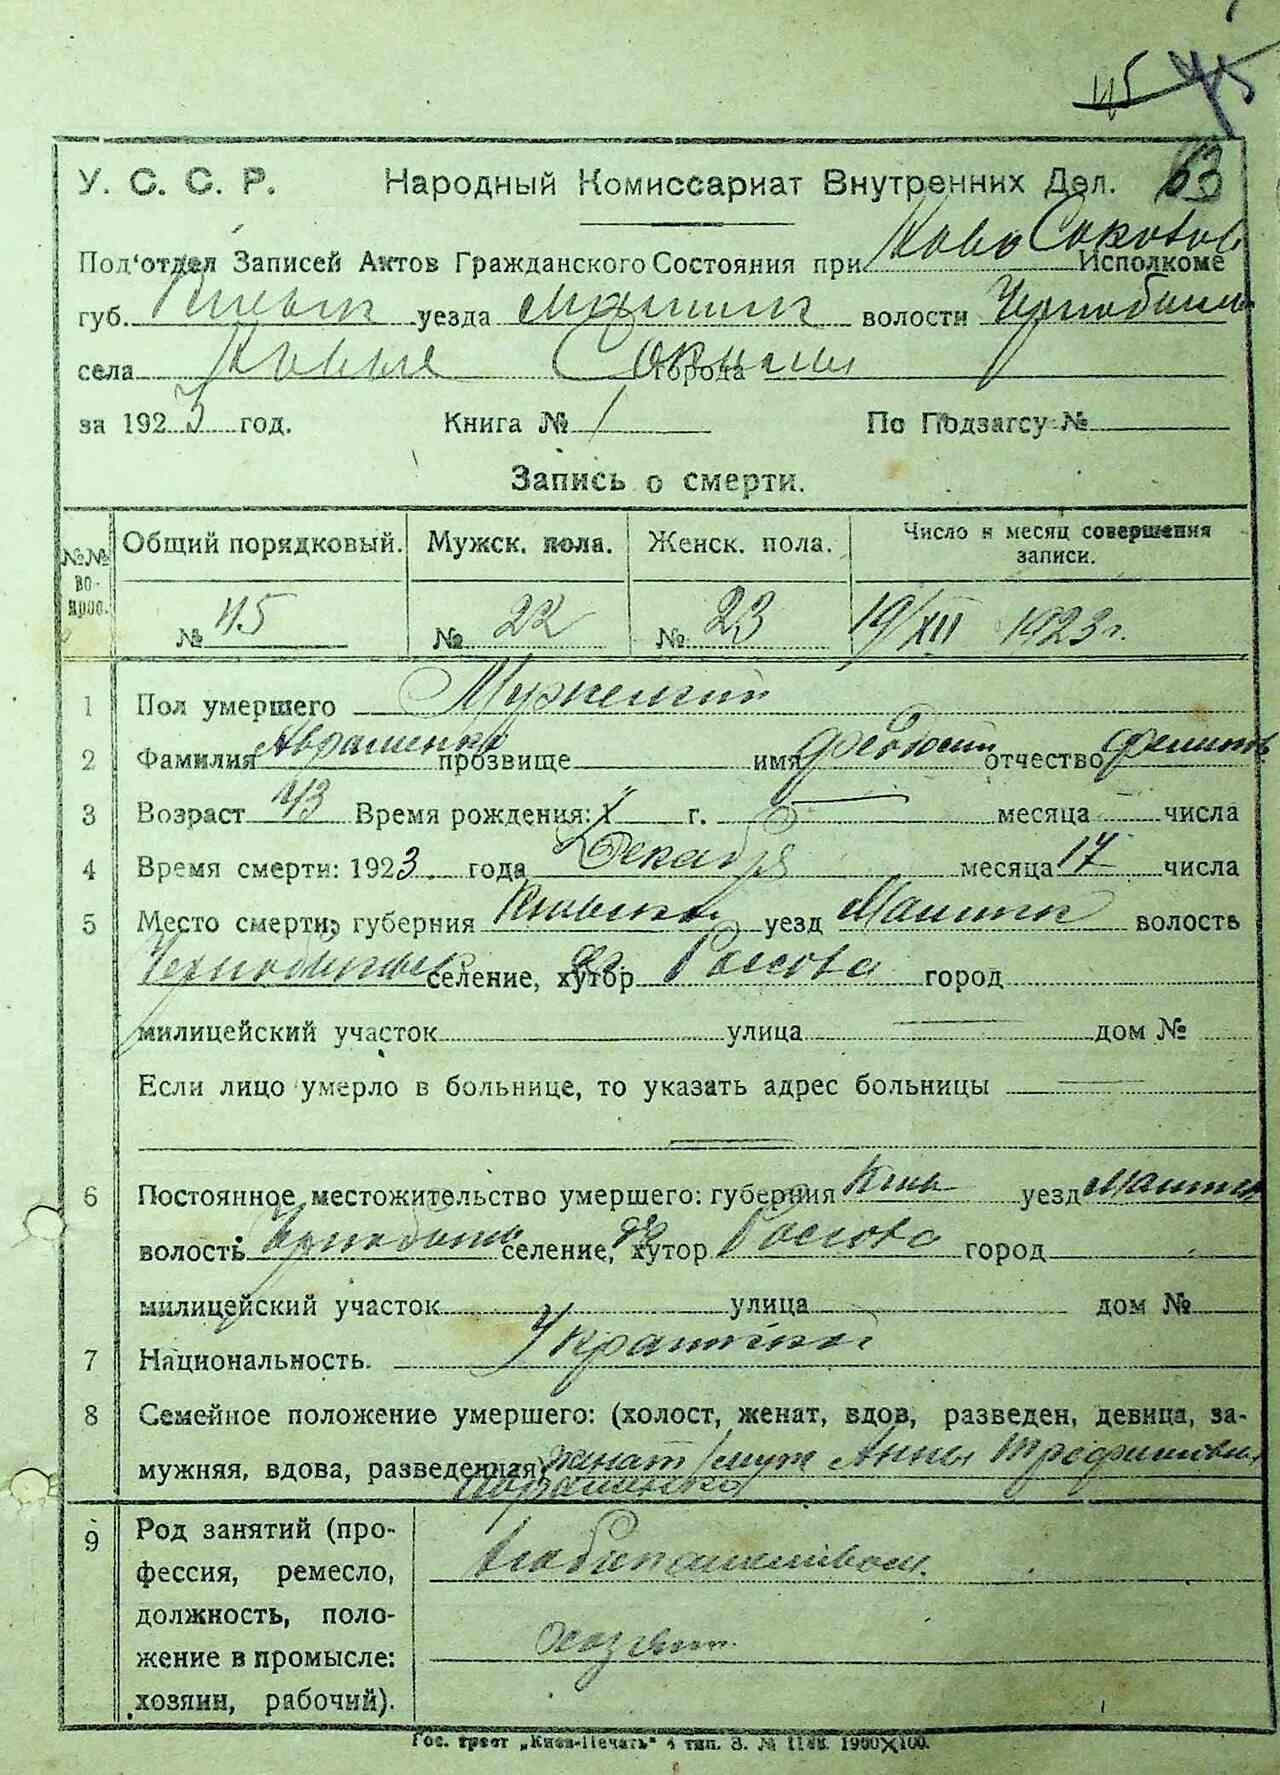 45 45
У. С. С. Р. Народный Комиссариат Внутренних Дел. 63
Под'отдел Записей Актов Гражданского Состояния при Ново Соковск Исполкоме
губ. Киевск уезда волости Чернобыльс
села Новые Соколы города
за 1923 год. Книга № 1 По Подзагсу №
Запись о смерти.
№№ вопрос. Общий порядковый. Мужск. пола. Женск. пола. Число и месяц совершения записи.
№ 45 № 22 № 23 19/XII 1923 г.
1 Пол умершего Мужеский
2 Фамилия Авраменко прозвище имя Феодосий отчество Филипов
3 Возраст 43 Время рождения: г. месяца числа
4 Время смерти: 1923 года Декабря месяца 17 числа
5 Место смерти, губерния Киевская уезд волость
Чернобыльск селение, хутор Рассова город
милицейский участок улица дом №
Если лицо умерло в больнице, то указать адрес больницы
6 Постоянное местожительство умершего: губерния Киев уезд
волость Чернобыль селение, хутор Рассова город
милицейский участок улица дом №
7 Национальность. Украинск
8 Семейное положение умершего: (холост, женат, вдов, разведен, девица, за-
мужняя, вдова, разведенная) женат муж Анны Трофимовны
Авраменко
9 Род занятий (про-
фессия, ремесло,
должность, поло-
жение в промысле:
хозяин, рабочий).
Хлебопашеством.
хозяин.
Гос. трест „Киев-Печать" 4 тип. З. №